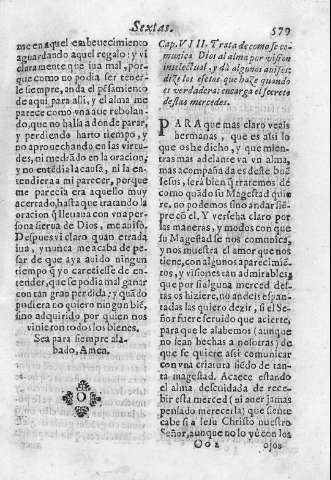 Sextas.
579
me en aquel embeuecimiento
aguardando aquel regalo: y vi
claramente que iua mal, por-
que como no podia ser tener-
le siempre, anda el pẽsamiento
de aqui para alli, y el alma me
parece como vn a aue rebolan-
do, que no halla a donde parar,
y perdiendo harto tiempo, y
no aprouechando en las virtu-
des, ni medrãdo en la oracion,
y no entẽdia la causa, ni la en-
tendiera a mi parecer, porque
me parecia era aquello muy
acertado, hasta que tratando la
oracion q̃ lleuaua con vna per-
sona sierua de Dios, me auiso.
Despues vi claro quan errada
iua, y nunca me acaba de pe-
sar de que aya auido ningun
tiempo q̃ yo careciesse de en-
tender, que se podia mal ganar
con tan gran perdida; y quãdo
pudiera no quiero ningun biẽ,
sino adquirido por quien nos
vinieron todos los bienes,
Sea para siempre ala-
bado, Amen.
Cap. VIII. Trata de como se co-
munica Dios al alma por vision
intelectual, y dà algunos auisos:
dize los efetos que haze quando
es verdadera: encarga el secreto
destas mercedes.
PARA que mas claro veais
hermanas, que es assi lo
que os he dicho, y que mientras
mas adelante va vn alma,
mas acompañada es deste buẽ
Iesus, serà bien q̃ tratemos de
como quãdo su Magestad quie
re, no podemos sino andar siẽ-
pre cõ el, Y verseha claro por
las maneras, y modos con que
su Magestad se nos comunica,
y nos muestra el amor que nos
tiene, con algunos aparecimiẽ-
tos, y visiones tan admirables,
que por si alguna merced des-
tas os hiziere, no andeis espan-
tadas las quiero dezir, si el Se-
ñor fuere seruido que acierte,
para que le alabemos (aunque
no sean hechas a nosotras) de
que se quiere assi comunicar
con vna criatura siẽdo de tan-
ta magestad. Acaece estando
el alma descuidada de rece-
bir esta merced (ni auer jamas
pensado merecerla) que siente
cabe si a Iesu Christo nuestro
Señor, aunque no lo vè con los
Oo 2
ojos